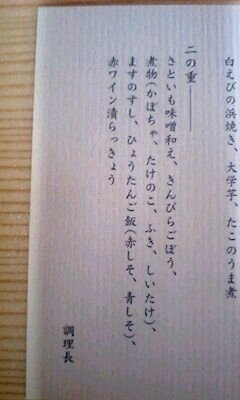 白えびの浜焼き、大学芋、たこのうま煮
二の重
さといも味噌和え、きんぴらごぼう、
煮物(かぼちゃ、たけのこ、ふき、しいたけ)、
ますのすし、ひょうたんご飯(赤しそ、青しそ)、
赤ワイン漬らっきょう
調理長